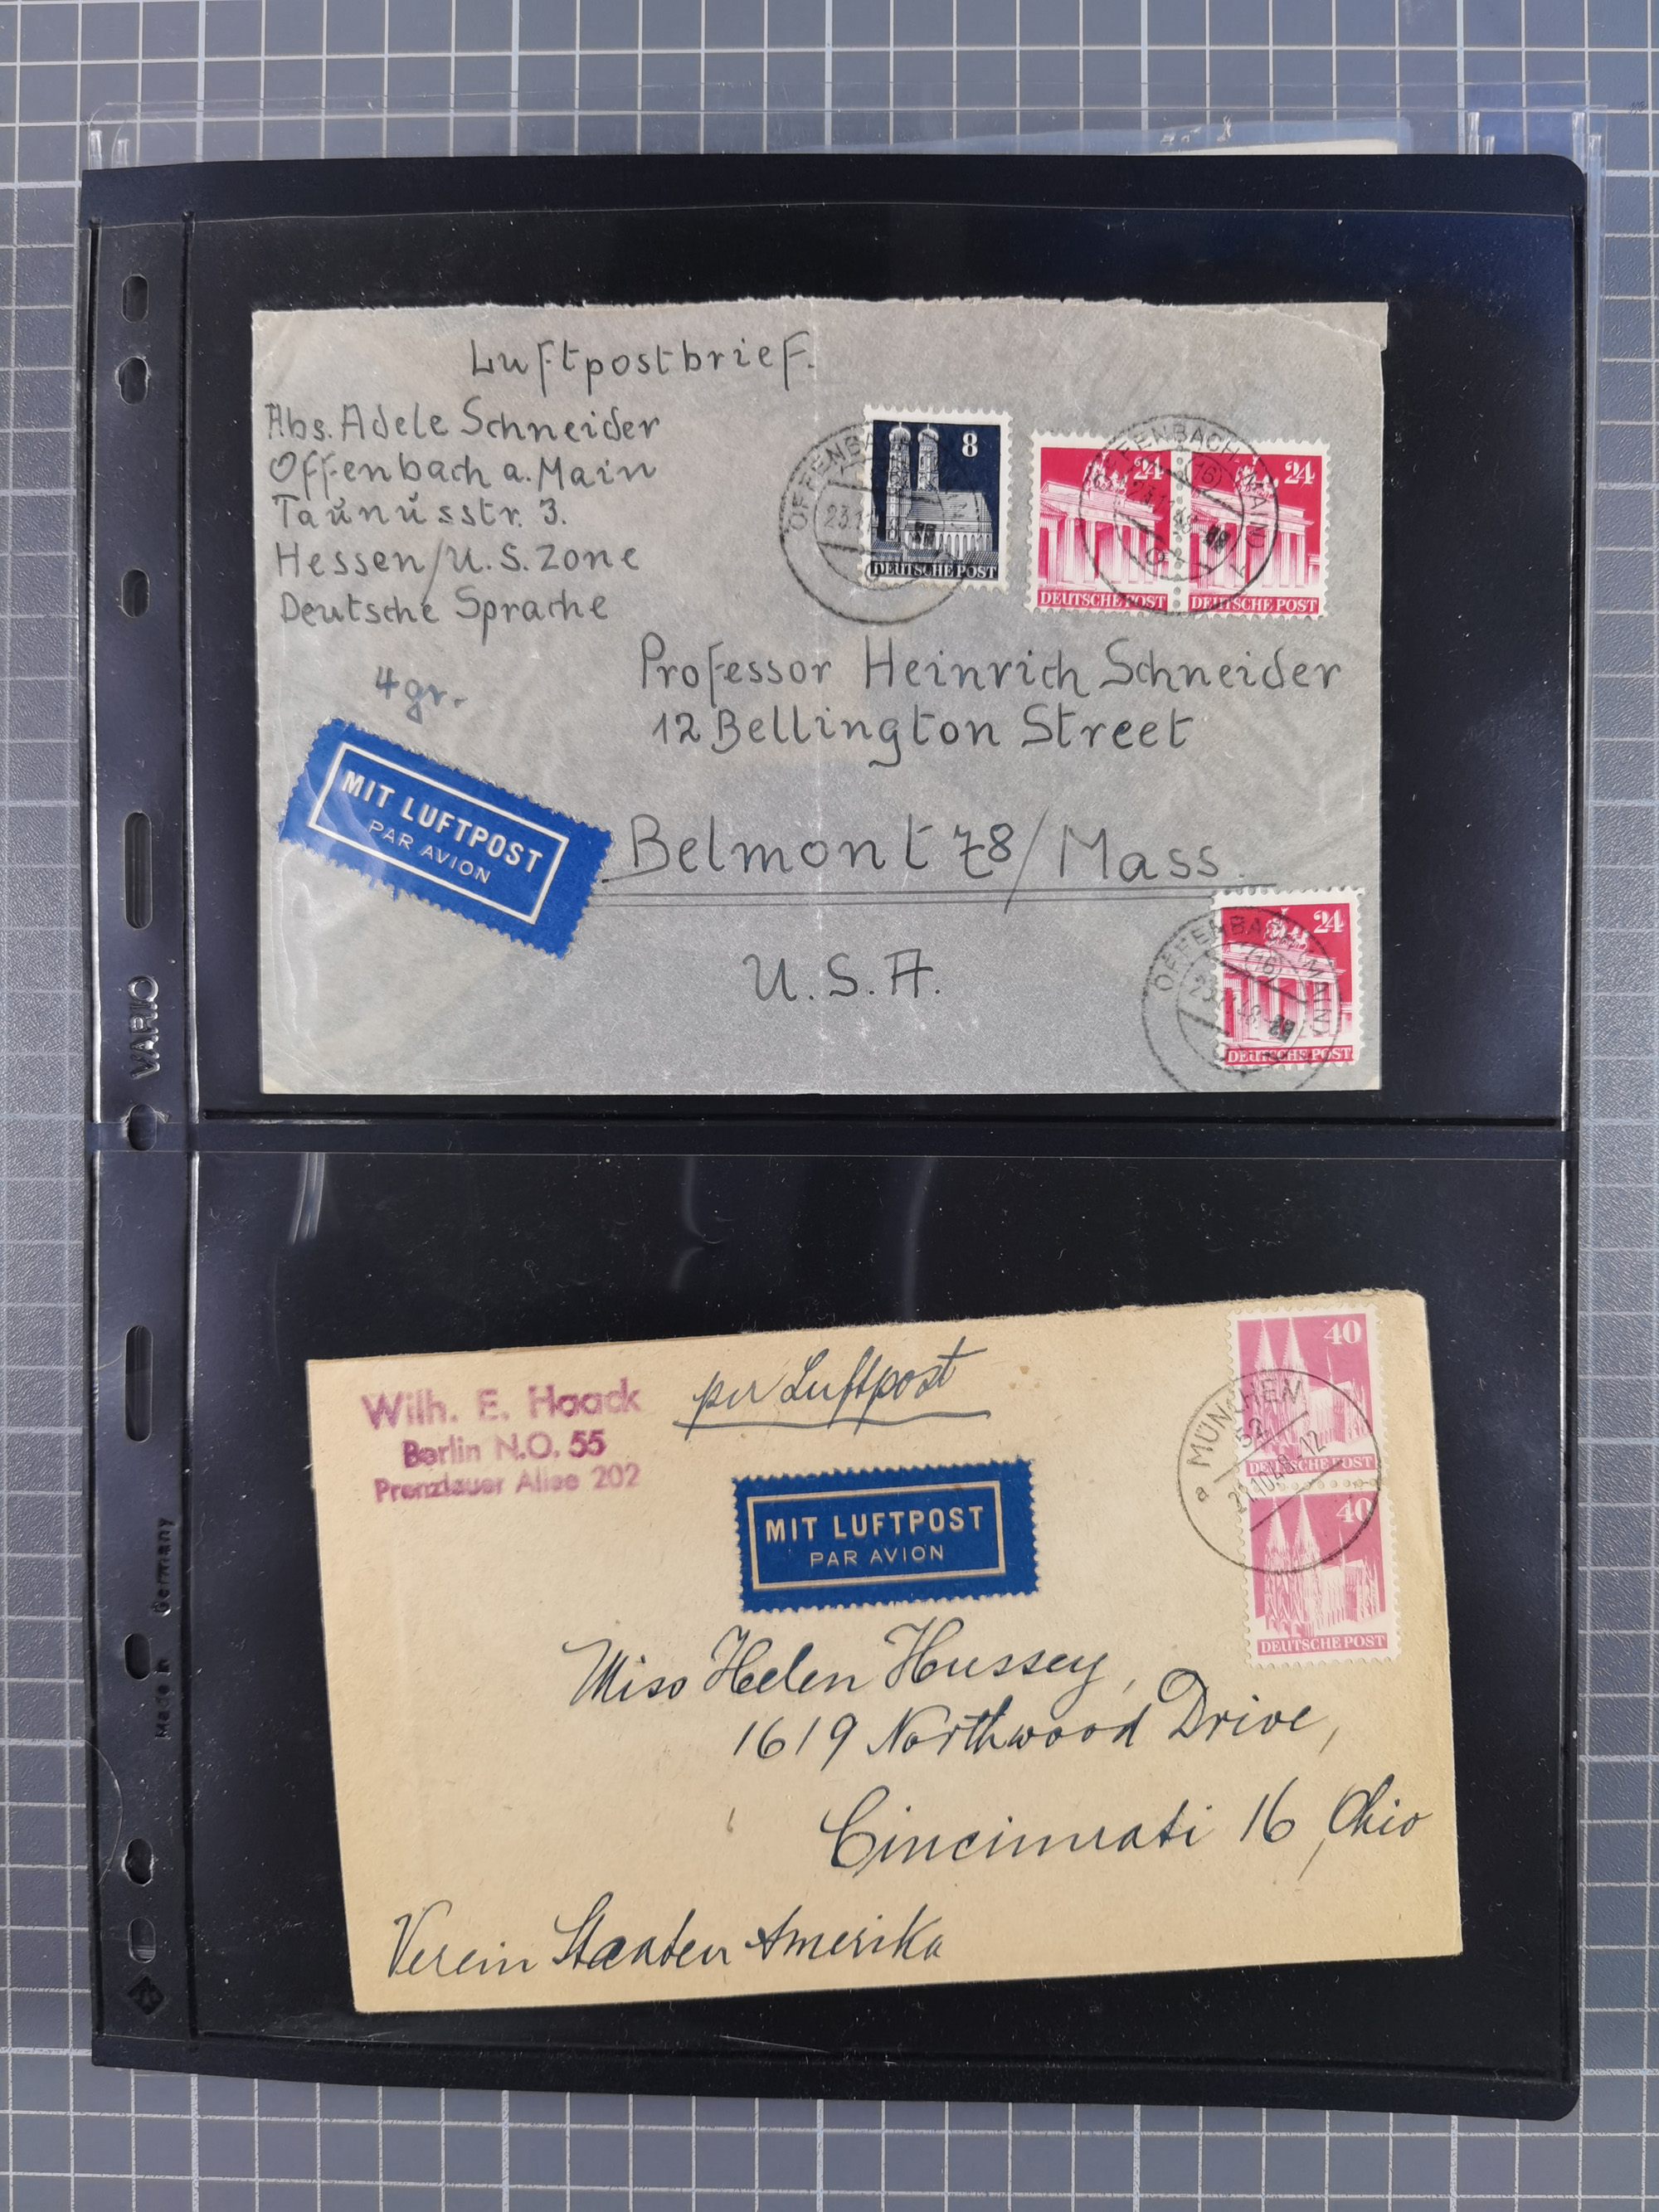 Luftpostbrief.
Abs. Adele Schneider
Offenbach a. Main
Taunusstr. 3.
Hessen/U.S. Zone
Deutsche Sprache
4 gr.
8
DEUTSCHE POST
24
DEUTSCHE POST
24
DEUTSCHE POST
OFFENBACH (MAIN)
(16)
Professor Heinrich Schneider
12 Bellington Street
Belmont 78/Mass.
U.S.A.
MIT LUFTPOST
PAR AVION
24
DEUTSCHE POST
OFFENBACH (MAIN)
(16)
VARIO
Made in Germany
Wilh. E. Haack
Berlin N.O. 55
Prenzlauer Allee 202
per Luftpost
MIT LUFTPOST
PAR AVION
40
DEUTSCHE POST
40
DEUTSCHE POST
MÜNCHEN
52
Miss Helen Hussey,
1619 Northwood Drive,
Cincinnati 16, Ohio
Verein Staaten Amerika